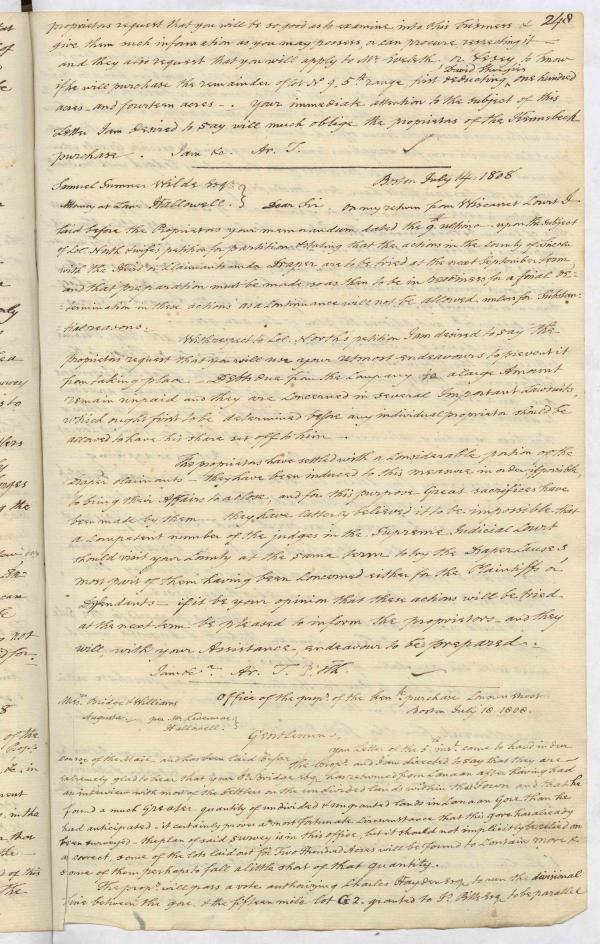 248
proprietors request that you will be so good as to examine into this business &
give them such information as you may possess, or can procure respecting it —
and they also request that you will apply to Mr Eveleth or Vesey to know
David Thurgin
if he will purchase the remainder of lot No 9, 5th range, first deducting, one hundred
acres — and fourteen acres —. Your immediate attention to the subject of this
Letter I am desired to say will much oblige the proprietors of the Kennebeck
purchase. I am &c. Ar. T.
Boston July 14. 1808
Samuel Sumner Wilde Esqr.
Attorney at Law Hallowell. } Dear Sir, on my return from Wiscasset Court I
laid before the Proprietors your memorandum dated the 9th ultimo — upon the subject
of Col. North & wife's petition for partition & stating that the actions in the County of Lincoln
with the Heirs or Claimants under Draper are to be tried at the next September term
and that preparation must be made so as then to be in readiness for a final de-
termination in these actions as a continuance will not be allowed unless for substan-
tial reasons.
With respect to Col. North's petition I am desired to say the
proprietors request that you will use your utmost endeavours to prevent it
from taking place — Debts due from the Company to a large Amount
remain unpaid and they are concerned in several Important Lawsuits,
which ought first to be determined before any individual proprietor should be
allowed to have his share set off to him —
The proprietors have settled with a considerable portion of the
Draper claimants — they have been induced to this measure in order if possible,
to bring their Affairs to a close, and for this purpose Great sacrifices have
been made by them — they have latterly believed it to be impossible that
a competent number of the judges in the Supreme Judicial Court
should visit your County at the same term to try the Draper Causes
most part of them having been concerned either for the Plaintiffs or
Defendants — if it be your opinion that these actions will be tried
at the next term be pleased to inform the proprietors — and they
will, with your Assistance, endeavour to be prepared.
I am &c. Ar. T.
Office of the propr. of the Kenk. purchase
Boston July 18. 1808.
Messrs Bridge & Williams
Augusta — per Mr Livermore
Hallowell }
Gentlemen,
your Letter of the 5th inst. came to hand in due
course of the Mail, and has been laid before the Propr. and I am directed to say that they are —
extremely glad to hear that your Mr Bridge Esq. has returned from Canaan after having had
an interview with most of the settlers on the undivided lands within that Town and that he
found a much Greater quantity of undivided & ungranted lands in Canaan Gore than he
had anticipated. it certainly proves a most fortunate circumstance that this gore has already
been surveyed — the plan of said survey is in this office, but it should not implicitly be relied on
as correct, some of the lots laid out for Two Thousand Acres will be found to contain more &
some of them perhaps to fall a little short of that quantity.
The propr. will pass a vote authorizing Charles Hayden Esq. to run the divisional
line between the gore, & the fifteen mile lot G 2. granted to Jo. Pitts Esq. to be parallel